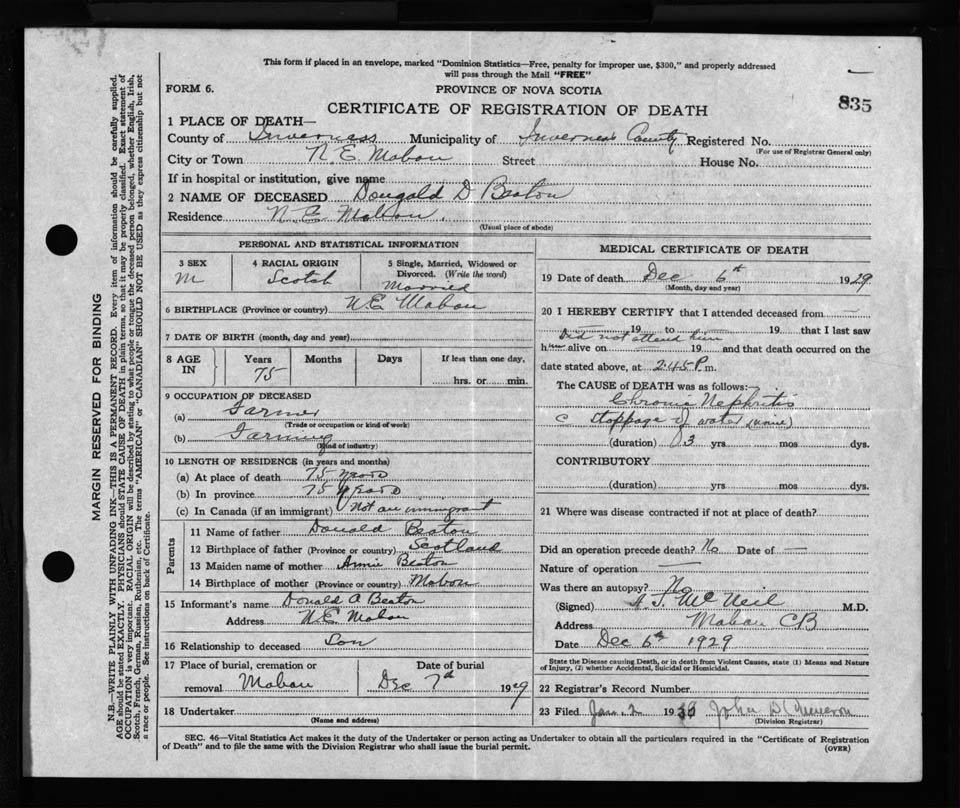 This form if placed in an envelope, marked "Dominion Statistics—Free, penalty for improper use, $300," and properly addressed
will pass through the Mail "FREE"
FORM 6.
PROVINCE OF NOVA SCOTIA
835
CERTIFICATE OF REGISTRATION OF DEATH
1 PLACE OF DEATH—
County of Inverness Municipality of Inverness County Registered No.
(For use of Registrar General only)
City or Town N. E. Mabou Street House No.
If in hospital or institution, give name
2 NAME OF DECEASED Dougald D Beaton
Residence N E Mabou.
(Usual place of abode)
PERSONAL AND STATISTICAL INFORMATION
3 SEX
M
4 RACIAL ORIGIN
Scotch
5 Single, Married, Widowed or
Divorced. (Write the word)
Married
6 BIRTHPLACE (Province or country) N.E. Mabou
7 DATE OF BIRTH (month, day and year)
8 AGE IN
Years Months Days If less than one day,
75 hrs. or min.
9 OCCUPATION OF DECEASED
(a) Farmer
(Trade or occupation or kind of work)
(b) Farming
(Kind of industry)
10 LENGTH OF RESIDENCE (in years and months)
(a) At place of death 75 years
(b) In province 75 years
(c) In Canada (if an immigrant) Not an immigrant
Parents
11 Name of father Donald Beaton
12 Birthplace of father (Province or country) Scotland
13 Maiden name of mother Annie Beaton
14 Birthplace of mother (Province or country) Mabou
15 Informant's name Donald A Beaton
Address N.E. Mabou
16 Relationship to deceased Son
17 Place of burial, cremation or
removal Mabou
Date of burial
Dec 7th 1929
18 Undertaker
(Name and address)
MEDICAL CERTIFICATE OF DEATH
19 Date of death Dec 6th 1929
(Month, day and year)
20 I HEREBY CERTIFY that I attended deceased from —
19 to 19 that I last saw
Did not attend him
him alive on 19 and that death occurred on the
date stated above, at 2.45 P.m.
The CAUSE of DEATH was as follows:
Chronic Nephritis
c stoppage of water (urine)
(duration) 3 yrs. mos. dys.
CONTRIBUTORY
(duration) yrs. mos. dys.
21 Where was disease contracted if not at place of death?
Did an operation precede death? No Date of —
Nature of operation —
Was there an autopsy? No
(Signed) McNeil M.D.
Address Mabou CB
Date Dec 6th 1929
State the Disease causing Death, or in death from Violent Causes, state (1) Means and Nature
of Injury, (2) whether Accidental, Suicidal or Homicidal.
22 Registrar's Record Number
23 Filed Jan. 2 1930 John D Cameron
(Division Registrar)
SEC. 46—Vital Statistics Act makes it the duty of the Undertaker or person acting as Undertaker to obtain all the particulars required in the "Certificate of Registration
of Death" and to file the same with the Division Registrar who shall issue the burial permit.
(OVER)
MARGIN RESERVED FOR BINDING
N.B.—WRITE PLAINLY WITH UNFADING INK—THIS IS A PERMANENT RECORD. Every item of information should be carefully supplied.
AGE should be stated EXACTLY. PHYSICIANS should STATE CAUSE OF DEATH in plain terms, so that it may be properly classified. Exact statement of
OCCUPATION is very important. RACIAL ORIGIN will be described by stating to what people or tongue the deceased person belonged, whether English, Irish,
Scotch, French, German, Russian, Ruthenian, etc. The terms "AMERICAN" or "CANADIAN" SHOULD NOT BE USED as they express citizenship but not
a race or people. See instructions on back of Certificate.